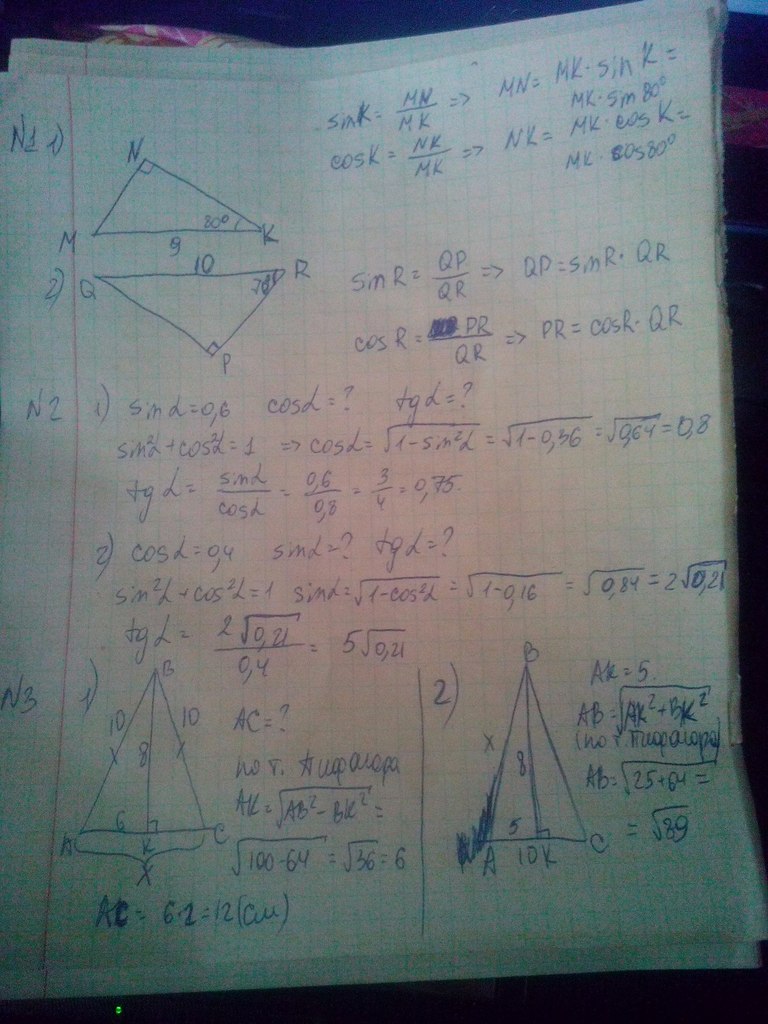 N1 1)
N
M
K
80°
9
sinK = MN/MK => MN = MK·sinK =
MK·sin80°
cosK = NK/MK => NK = MK·cosK =
MK·cos80°
2)
Q
10
R
P
sinR = QP/QR => QP = sinR·QR
cosR = PR/QR => PR = cosR·QR
N2 1) sinα = 0,6 cosα = ? tgα = ?
sin²α + cos²α = 1 => cosα = √1-sin²α = √1-0,36 = √0,64 = 0,8
tgα = sinα/cosα = 0,6/0,8 = 3/4 = 0,75.
2) cosα = 0,4 sinα = ? tgα = ?
sin²α + cos²α = 1 sinα = √1-cos²α = √1-0,16 = √0,84 = 2√0,21
tgα = 2√0,21/0,4 = 5√0,21
N3 1)
B
10
10
8
6
A
K
C
X
AC = ?
по т. Пифагора
AK = √AB²-BK² =
√100-64 = √36 = 6
AC = 6·2 = 12 (см)
2)
B
x
8
5
A
10
K
C
AK = 5.
AB = √AK²+BK²
(по т. Пифагора)
AB = √25+64 =
= √89